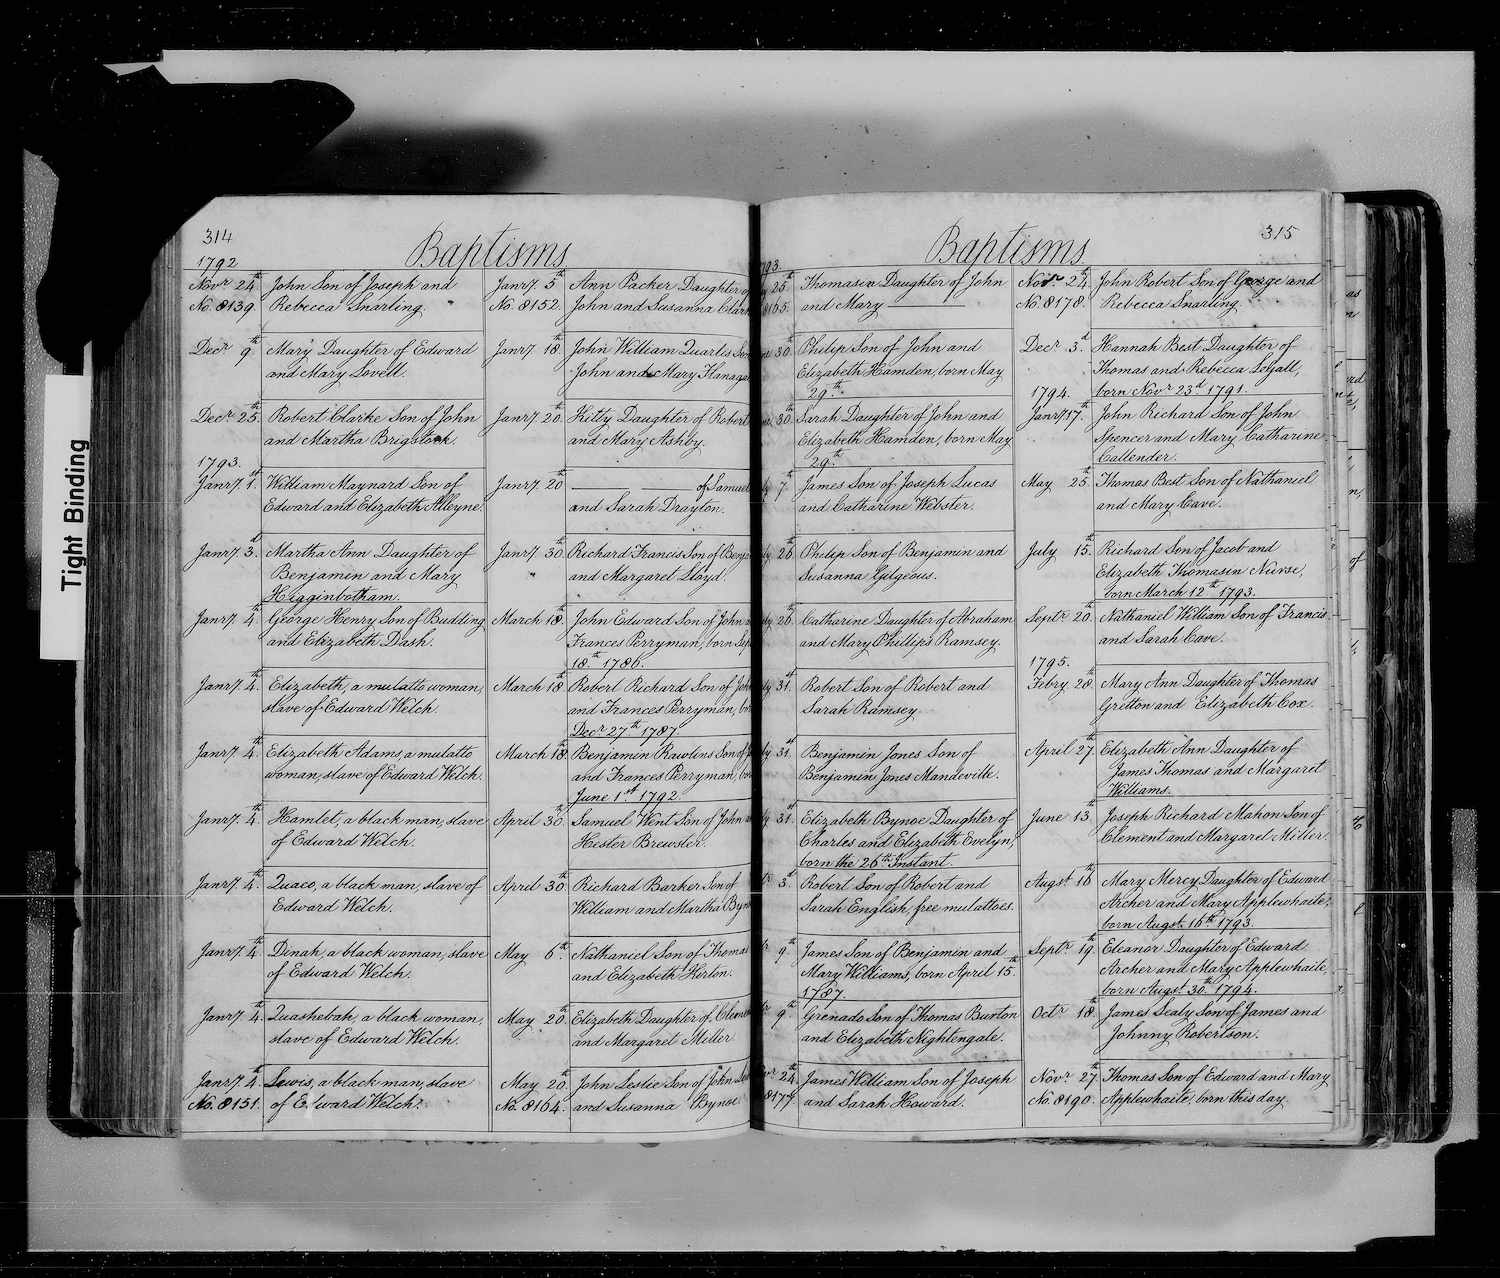 Tight Binding
314
Baptisms
1792
Novr 24th John Son of Joseph and
No. 8139. Rebecca Snarling.
Decr 9th Mary Daughter of Edward
and Mary Lovell.
Decr 25th Robert Clarke Son of John
and Martha Brigstock.
1793.
Janry. 1st William Maynard Son of
Edward and Elizabeth Alleyne.
Janry. 3d Martha Ann Daughter of
Benjamin and Mary
Higginbotham.
Janry. 4th George Henry Son of Budding
and Elizabeth Dash.
Janry. 4th Elizabeth, a mulatto woman,
slave of Edward Welch.
Janry. 4th Elizabeth Adams, a mulatto
woman, slave of Edward Welch.
Janry. 4th Hamlet, a black man, slave
of Edward Welch.
Janry. 4th Quaco, a black man, slave of
Edward Welch.
Janry. 4th Dinah, a black woman, slave
of Edward Welch.
Janry. 4th Quashebah, a black woman,
slave of Edward Welch.
Janry. 4th Lewis, a black man, slave
No. 8151. of Edward Welch.
Janry. 5th Ann Packer Daughter of
No. 8152. John and Susanna
Janry. 18th John William Quarles
John and Mary
Janry. 20th Kitty Daughter of Robert
and Mary Ashby.
Janry. 20th of Samuel
and Sarah Drayton.
Janry. 30th Richard Francis Son of
and Margaret Lloyd.
March 18th John Edward Son of John
Frances Perryman, born
18th 1786.
March 18th Robert Richard Son of
and Frances Perryman,
Decr 27th 1787.
March 18th Benjamin Rawlins Son of
and Frances Perryman,
June 1st 1792.
April 30th Samuel Went Son of John
Hester Brewster.
April 30th Richard Barker Son of
William and Martha
May 6th Nathaniel Son of Thomas
and Elizabeth
May 20th Elizabeth Daughter of
and Margaret Miller
May 20th John Leslie Son of John
No. 8164. and Susanna Bynoe
Baptisms
315
25th Thomasin Daughter of John
8165. and Mary
30th Philip Son of John and
Elizabeth Hamden, born May
29th
30th Sarah Daughter of John and
Elizabeth Hamden, born May
29th
7th James Son of Joseph Lucas
and Catharine Webster.
26th Philip Son of Benjamin and
Susanna Gilgeous.
26th Catharine Daughter of Abraham
and Mary Phillips Ramsey.
31st Robert Son of Robert and
Sarah Ramsey
31st Benjamin Jones Son of
Benjamin Jones Mandeville.
31st Elizabeth Bynoe Daughter of
Charles and Elizabeth Evelyn,
born the 26th Instant.
3d Robert Son of Robert and
Sarah English, free mulattoes.
9th James Son of Benjamin and
Mary Williams, born April 15th
1787.
9th Grenado Son of Thomas Burton
and Elizabeth Nightengale.
24th James William Son of Joseph
8177. and Sarah Howard.
Novr 24th John Robert Son of George and
No. 8178. Rebecca Snarling.
Decr 3d Hannah Best Daughter of
Thomas and Rebecca
1794. born Novr 23d 1791.
Janry 17th John Richard Son of John
Spencer and Mary Catharine
Callender.
May 25th Thomas Best Son of Nathaniel
and Mary Cave.
July 15th Richard Son of Jacob and
Elizabeth Thomasin Nurse,
born March 12th 1793.
Septr 20th Nathaniel William Son of Francis
and Sarah Cave.
1795.
Febry 28th Mary Ann Daughter of Thomas
Gretton and Elizabeth Cox.
April 27th Elizabeth Ann Daughter of
James Thomas and Margaret
Williams.
June 13th Joseph Richard Mahon Son of
Clement and Margaret Miller.
Augst 16th Mary Mercy Daughter of Edward
Archer and Mary Applewhaite,
born Augst 16th 1793.
Septr 19th Eleanor Daughter of Edward
Archer and Mary Applewhaite,
born Augst 30th 1794.
Octr 18th James Sealy Son of James and
Johnny Robertson.
Novr 27th Thomas Son of Edward and Mary
No. 8190. Applewhaite, born this day.